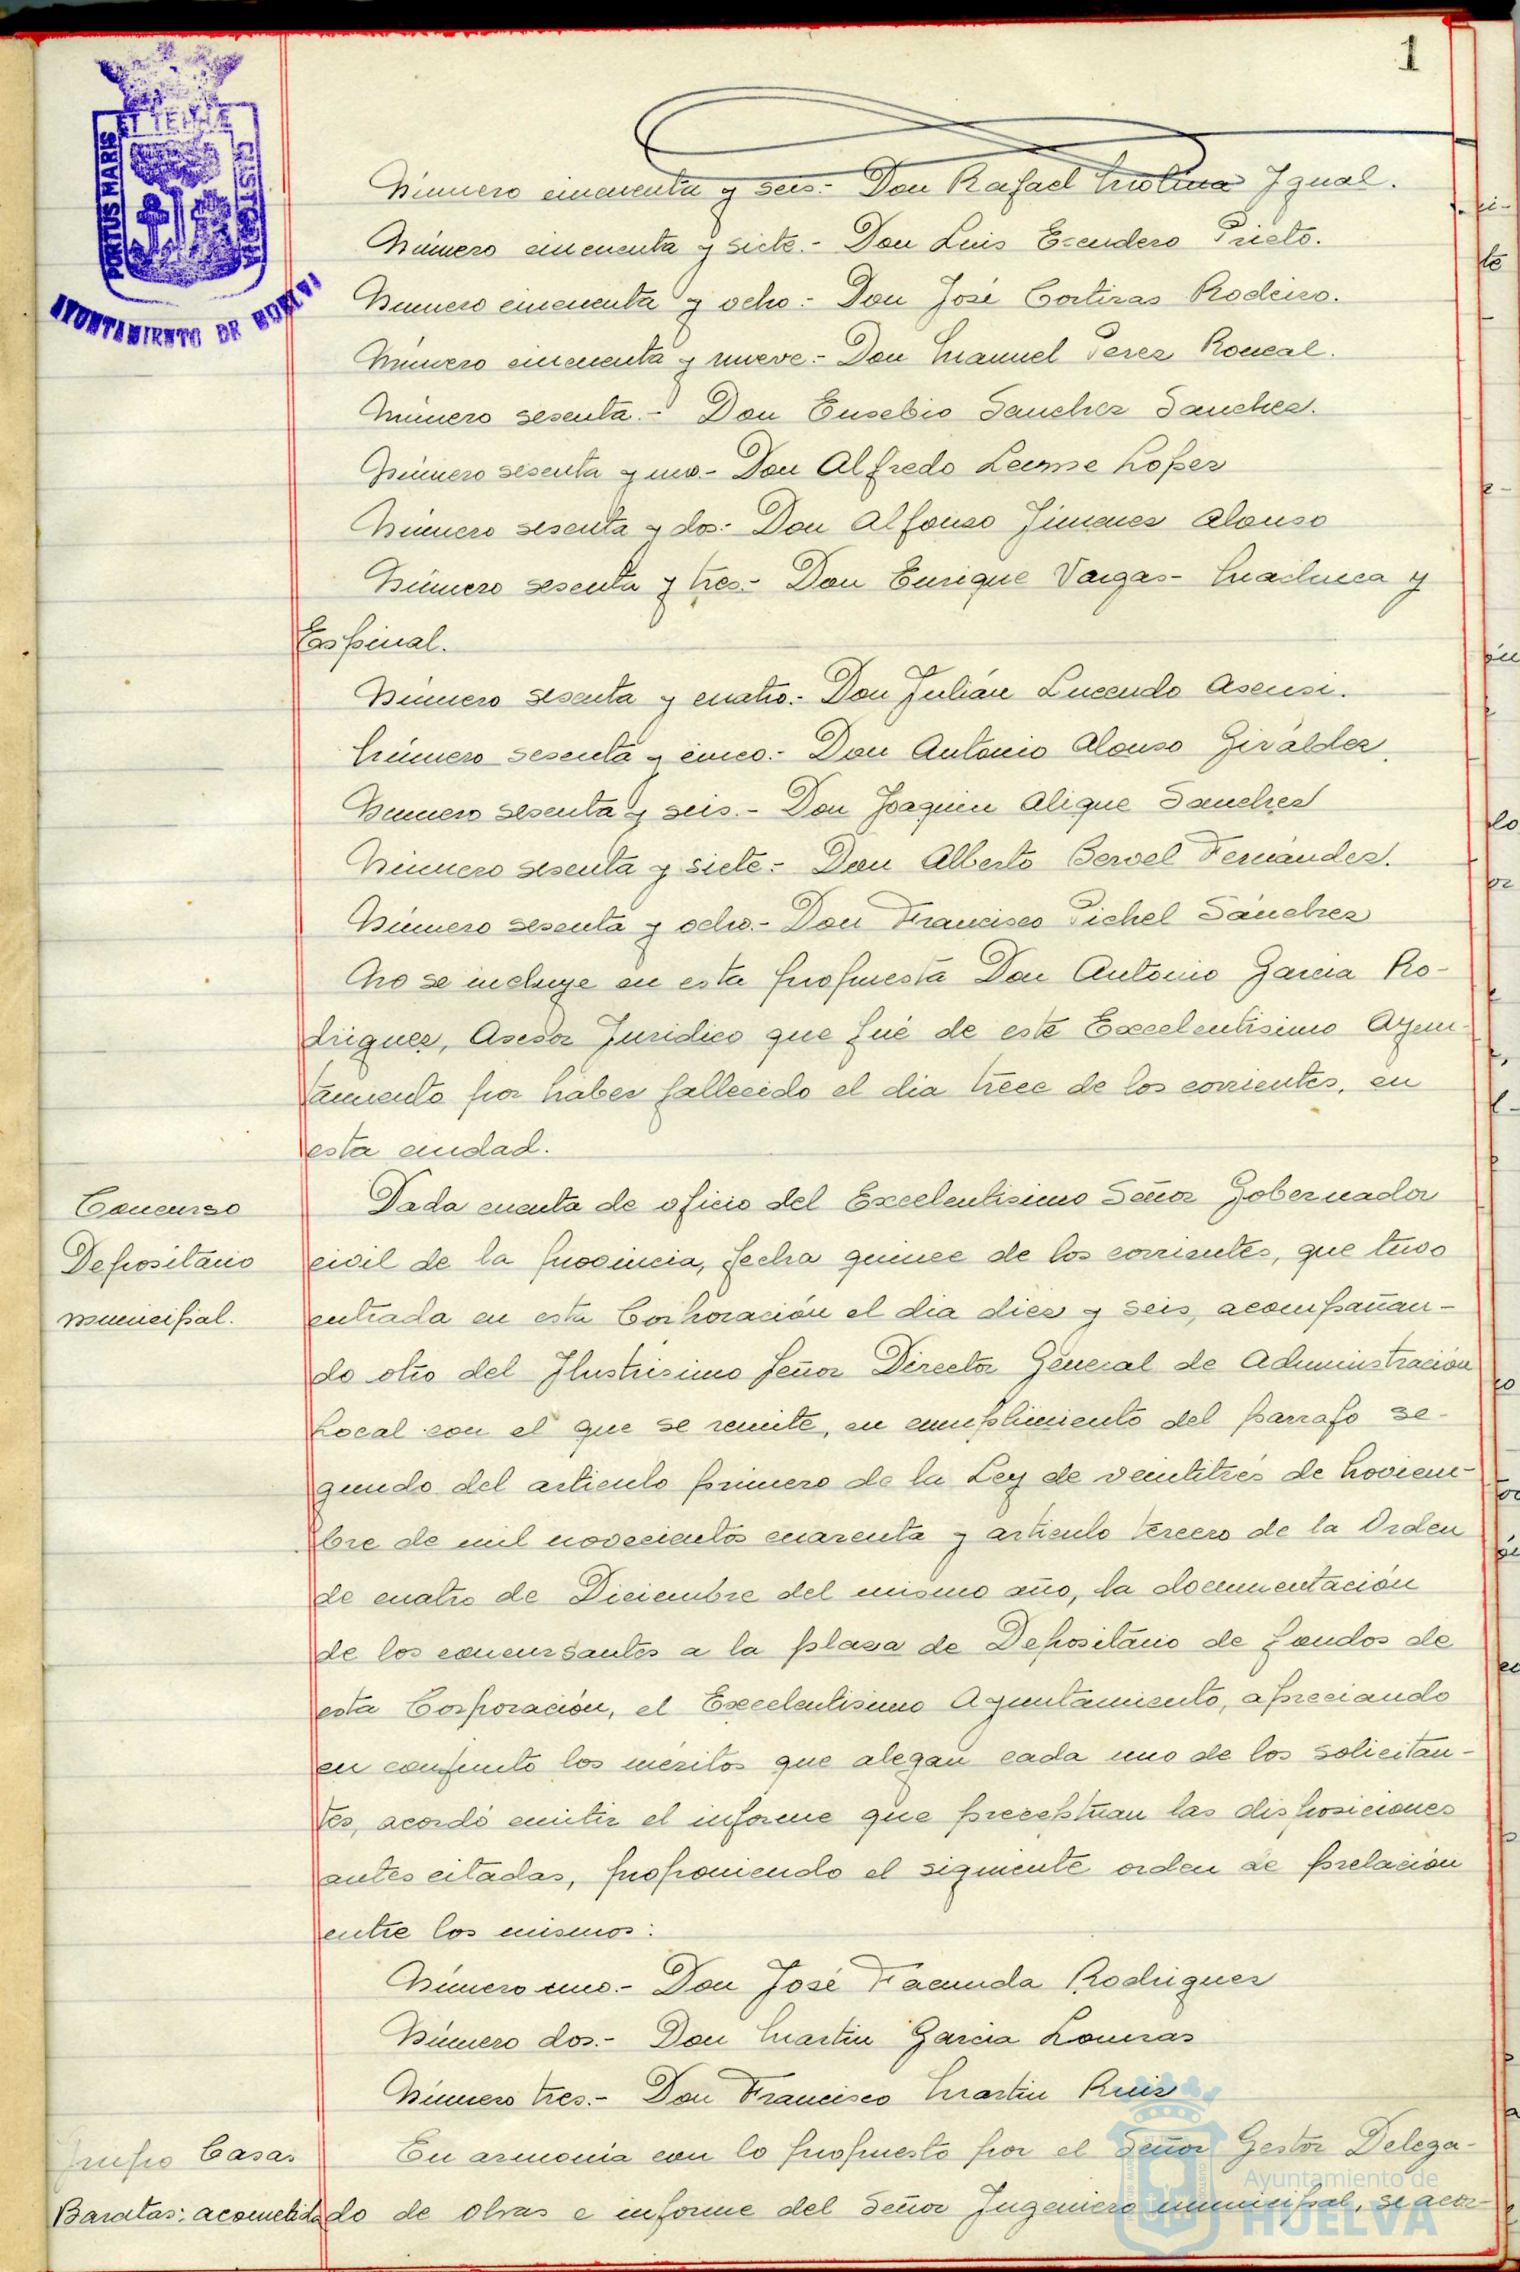 1
PORTUS MARIS
ET TERRÆ
CUSTODIA
AYUNTAMIENTO DE HUELVA
Número cincuenta y seis.- Don Rafael Molina Igual.
Número cincuenta y siete.- Don Luis Escudero Prieto.
Número cincuenta y ocho.- Don José Cortiras Rodeiro.
Número cincuenta y nueve.- Don Manuel Perez Roncal.
Número sesenta.- Don Eusebio Sanchez Sanchez.
Número sesenta y uno.- Don Alfredo Lopez
Número sesenta y dos.- Don Alfonso Jimenez Alonso
Número sesenta y tres.- Don Enrique Vargas-Machuca y
Espinal.
Número sesenta y cuatro.- Don Julián Lucendo Asensi.
Número sesenta y cinco.- Don Antonio Alonso Giráldez.
Número sesenta y seis.- Don Joaquin Alique Sanchez
Número sesenta y siete.- Don Alberto Fernández.
Número sesenta y ocho.- Don Francisco Pichel Sánchez
No se incluye en esta propuesta Don Antonio Garcia Ro-
driguez, Asesor Juridico que fué de este Excelentisimo Ayun-
tamiento por haber fallecido el dia trece de los corrientes, en
esta ciudad.
Concurso
Depositario
municipal.
Dada cuenta de oficio del Excelentisimo Señor Gobernador
civil de la provincia, fecha quince de los corrientes, que tuvo
entrada en esta Corporación el dia diez y seis, acompañan-
do otro del Ilustrisimo Señor Director General de Administración
Local con el que se remite, en cumplimiento del parrafo se-
gundo del articulo primero de la Ley de veintitrés de Noviem-
bre de mil novecientos cuarenta y articulo tercero de la Orden
de cuatro de Diciembre del mismo año, la documentación
de los concursantes a la plaza de Depositario de fondos de
esta Corporación, el Excelentisimo Ayuntamiento, apreciando
en conjunto los méritos que alegan cada uno de los solicitan-
tes, acordó emitir el informe que preceptúan las disposiciones
antes citadas, proponiendo el siguiente orden de prelación
entre los mismos:
Número uno.- Don José Facunda Rodriguez
Número dos.- Don Martin Garcia Lomas
Número tres.- Don Francisco Martin Ruiz
Grupo Casas
Baratas: acometida
En armonia con lo propuesto por el Señor Gestor Delega-
do de Obras e informe del Señor Ingeniero municipal, se acor-
Ayuntamiento de
HUELVA